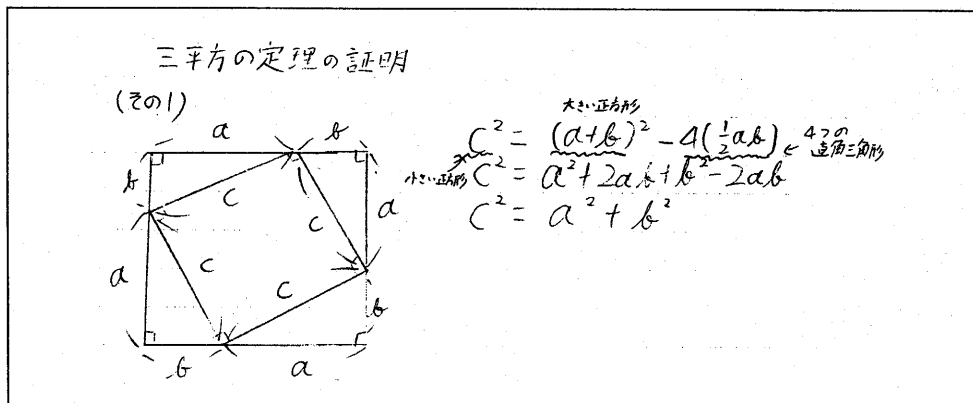 三平方の定理の証明
(その1)
a
b
b
a
c
c
c
c
a
b
b
a
大きい正方形
c² = (a+b)² - 4(½ab) ← 4つの直角三角形
小さい正方形
c² = a² + 2ab + b² - 2ab
c² = a² + b²